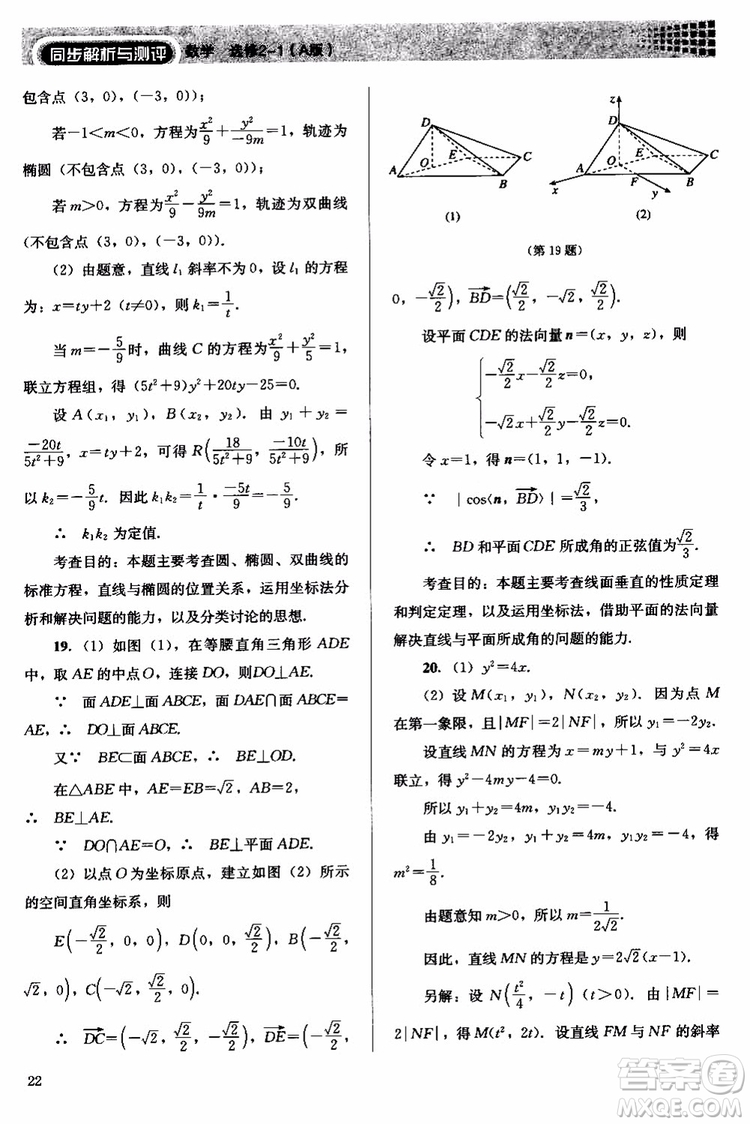 同步解析与测评 数学 选修2-1（A版）
包含点（3，0），（－3，0））；
若－1＜m＜0，方程为x²/9＋y²/(－9m)＝1，轨迹为
椭圆（不包含点（3，0），（－3，0））；
若m＞0，方程为x²/9－y²/(9m)＝1，轨迹为双曲线
（不包含点（3，0），（－3，0））.
（2）由题意，直线l₁斜率不为0，设l₁的方程
为：x＝ty＋2（t≠0），则k₁＝1/t.
当m＝－5/9时，曲线C的方程为x²/9＋y²/5＝1，
联立方程组，得（5t²＋9）y²＋20ty－25＝0.
设A（x₁，y₁），B（x₂，y₂）.由y₁＋y₂＝
－20t/(5t²＋9)，x＝ty＋2，可得R(18/(5t²＋9)，－10t/(5t²＋9))，所
以k₂＝－5/9 t.因此k₁k₂＝1/t·－5t/9＝－5/9.
∴ k₁k₂为定值.
考查目的：本题主要考查圆、椭圆、双曲线的
标准方程，直线与椭圆的位置关系，运用坐标法分
析和解决问题的能力，以及分类讨论的思想.
19.（1）如图（1），在等腰直角三角形ADE
中，取AE的中点O，连接DO，则DO⊥AE.
∵ 面ADE⊥面ABCE，面DAE∩面ABCE＝
AE，∴ DO⊥面ABCE.
又∵ BE⊂面ABCE，∴ BE⊥OD.
在△ABE中，AE＝EB＝√2，AB＝2，
∴ BE⊥AE.
∵ DO∩AE＝O，∴ BE⊥平面ADE.
（2）以点O为坐标原点，建立如图（2）所示
的空间直角坐标系，则
E(－√2/2，0，0)，D(0，0，√2/2)，B(－√2/2，
√2，0)，C(－√2，√2/2，0).
∴ DC＝(－√2，√2/2，－√2/2)，DE＝(－√2/2，
22
D
A
O
E
C
B
（1）
z
D
A
O
E
C
F
B
x
y
（2）
（第19题）
0，－√2/2)，BD＝(√2/2，－√2，√2/2).
设平面CDE的法向量n＝(x，y，z)，则
{－√2/2 x－√2/2 z＝0，
－√2x＋√2/2 y－√2/2 z＝0.
令x＝1，得n＝(1，1，－1).
∵ |cos⟨n，BD⟩|＝√2/3，
∴ BD和平面CDE所成角的正弦值为√2/3.
考查目的：本题主要考查线面垂直的性质定理
和判定定理，以及运用坐标法，借助平面的法向量
解决直线与平面所成角的问题的能力.
20.（1）y²＝4x.
（2）设M（x₁，y₁），N（x₂，y₂）.因为点M
在第一象限，且|MF|＝2|NF|，所以y₁＝－2y₂.
设直线MN的方程为x＝my＋1，与y²＝4x
联立，得y²－4my－4＝0.
所以y₁＋y₂＝4m，y₁y₂＝－4.
由y₁＝－2y₂，y₁＋y₂＝4m，y₁y₂＝－4，得
m²＝1/8.
由题意知m＞0，所以m＝1/(2√2).
因此，直线MN的方程是y＝2√2(x－1).
另解：设N(t²/4，－t)（t＞0）.如果|MF|＝
2|NF|，得M(t²，2t).设直线FM与NF的斜率
答案圈